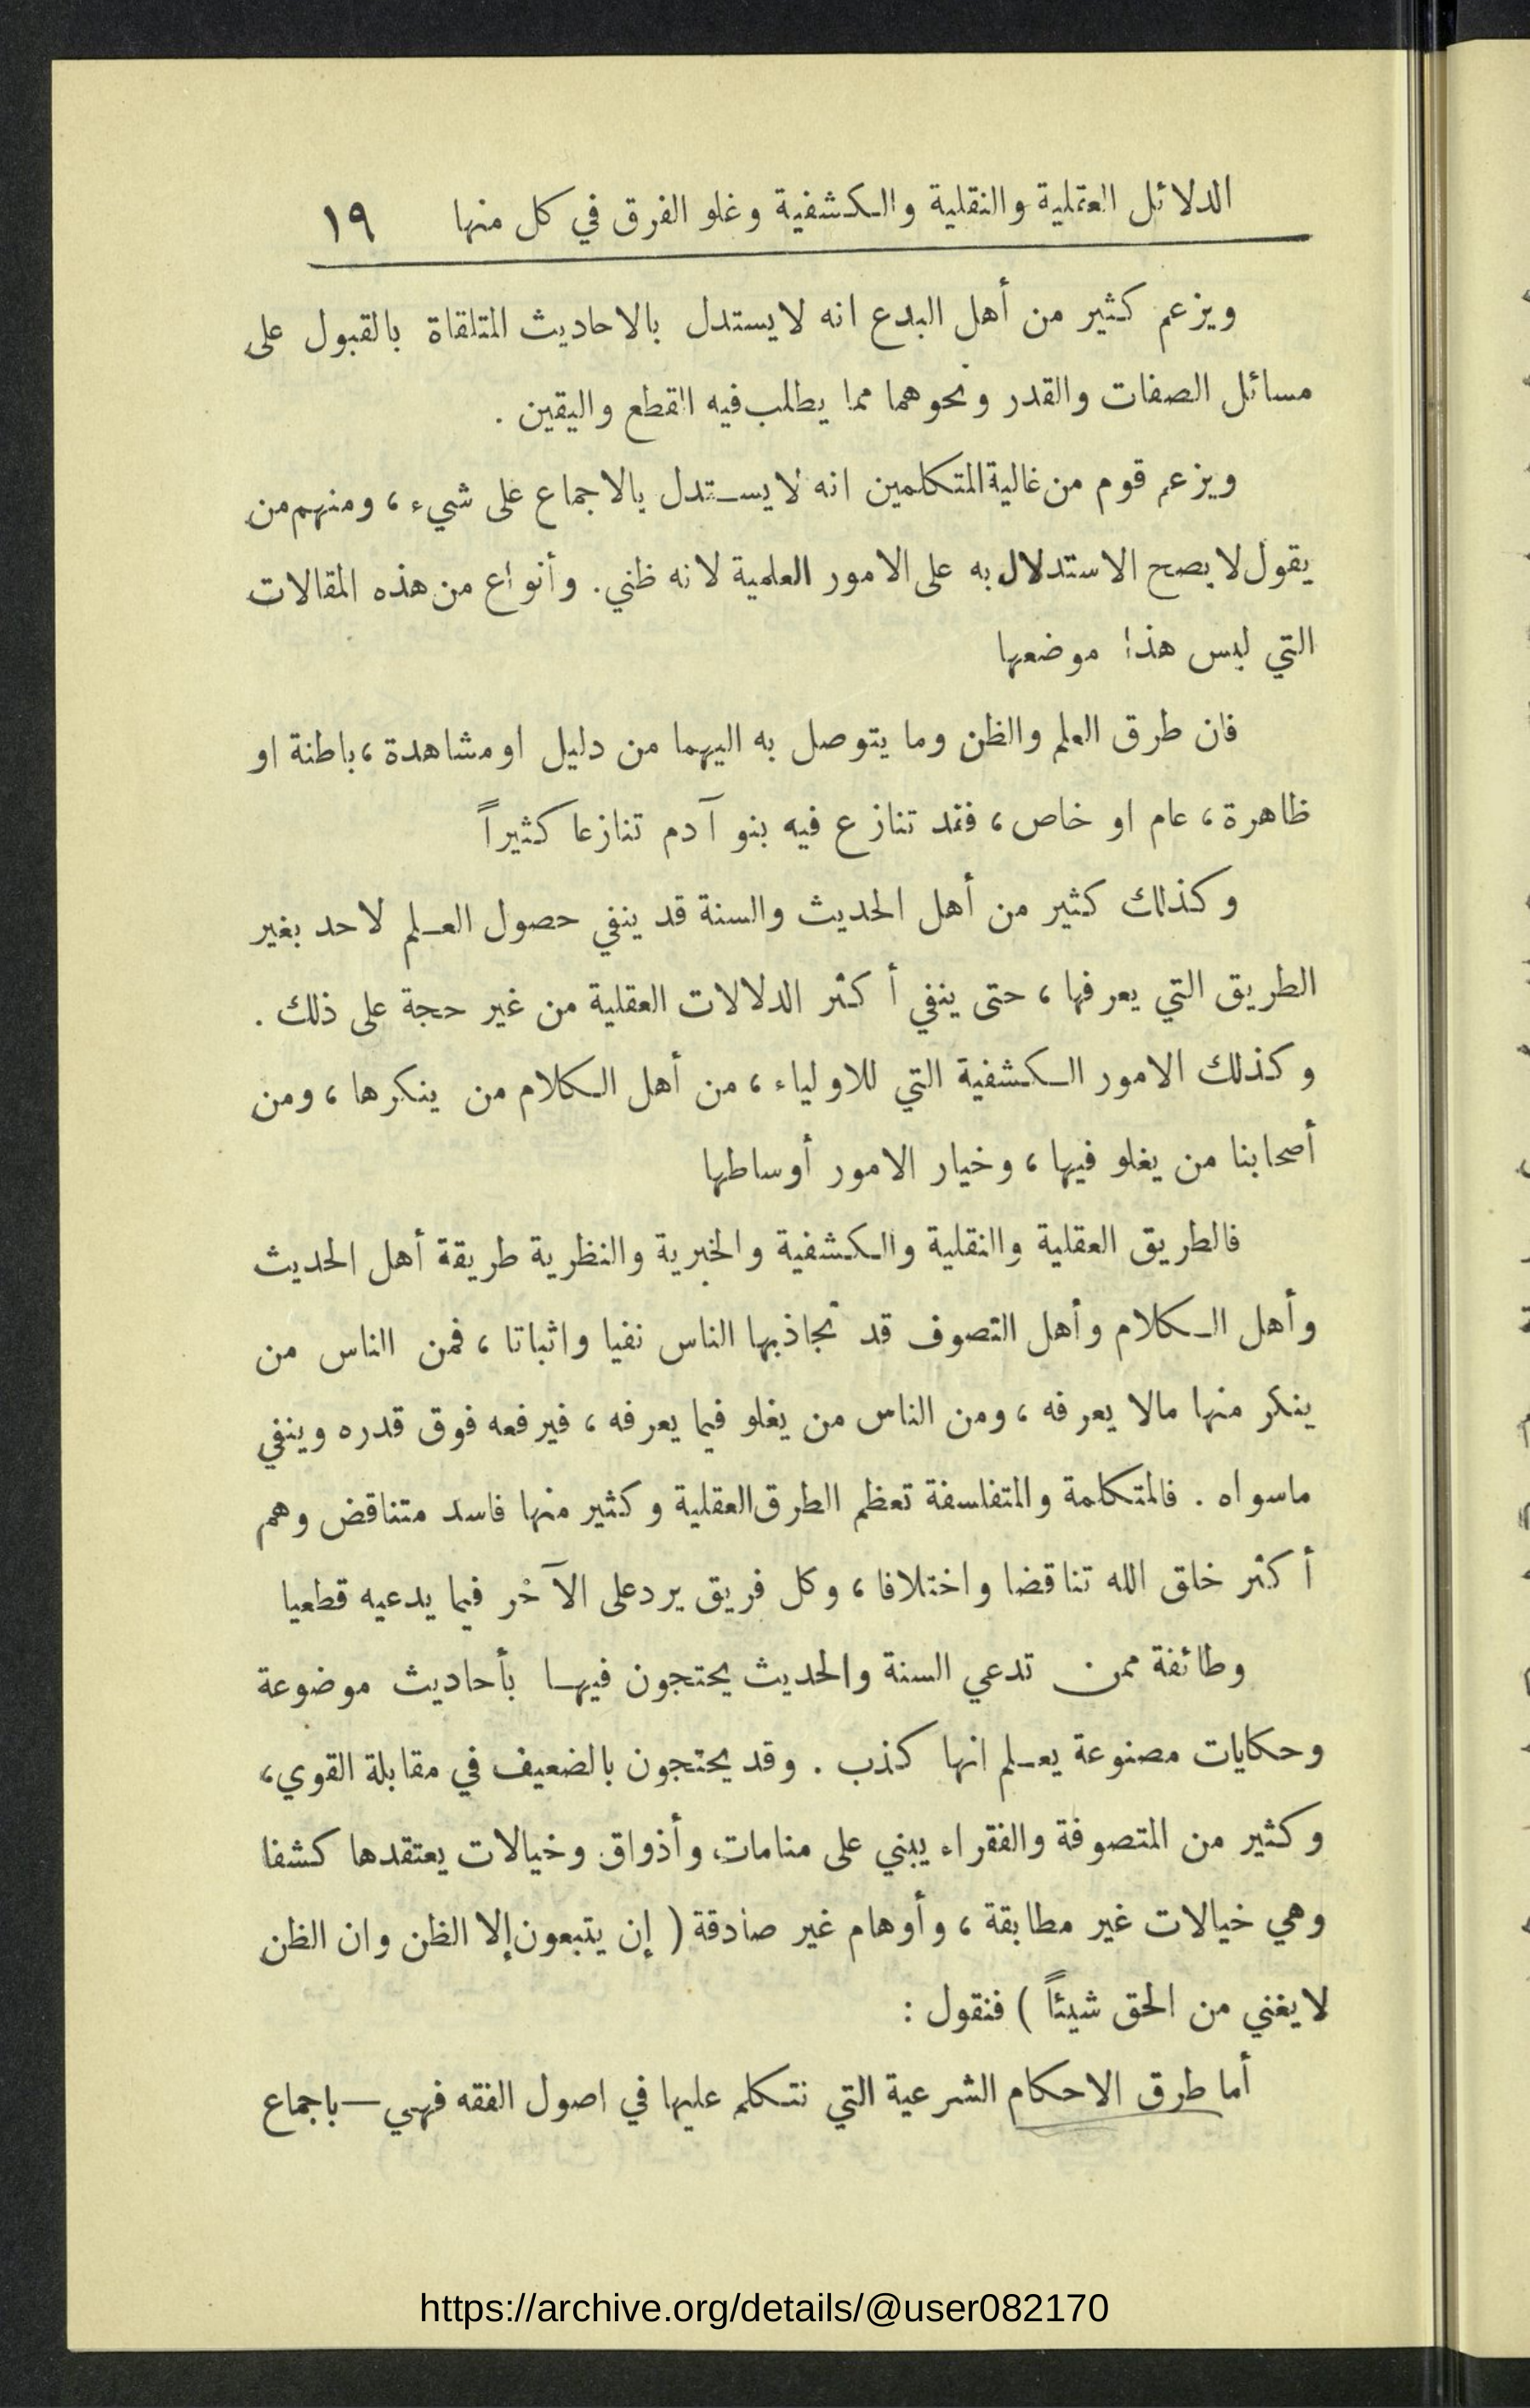 الدلائل العقلية والنقلية والكشفية وغلو الفرق في كل منها ١٩
ويزعم كثير من أهل البدع انه لايستدل بالاحاديث المتلقاة بالقبول على
مسائل الصفات والقدر ونحوهما مما يطلب فيه القطع واليقين .
ويزعم قوم من غالية المتكلمين انه لايستدل بالاجماع على شيء ، ومنهم من
يقول لا يصح الاستدلال به على الامور العلمية لانه ظني . وأنواع من هذه المقالات
التي ليس هذا موضعها
فان طرق العلم والظن وما يتوصل به اليهما من دليل او مشاهدة ، باطنة او
ظاهرة ، عام او خاص ، فقد تنازع فيه بنو آدم تنازعا كثيراً
وكذلك كثير من أهل الحديث والسنة قد ينفي حصول العلم لاحد بغير
الطريق التي يعرفها ، حتى ينفي أكثر الدلالات العقلية من غير حجة على ذلك .
وكذلك الامور الكشفية التي للاولياء ، من أهل الكلام من ينكرها ، ومن
أصحابنا من يغلو فيها ، وخيار الامور أوساطها
فالطريق العقلية والنقلية والكشفية والخبرية والنظرية طريقة أهل الحديث
وأهل الكلام وأهل التصوف قد تجاذبها الناس نفيا واثباتا ، فمن الناس من
ينكر منها مالا يعرفه ، ومن الناس من يغلو فيما يعرفه ، فيرفعه فوق قدره وينفي
ماسواه . فالمتكلمة والمتفلسفة تعظم الطرق العقلية وكثير منها فاسد متناقض وهم
أكثر خلق الله تناقضا واختلافا ، وكل فريق يرد على الآخر فيما يدعيه قطعيا
وطائفة ممن تدعي السنة والحديث يحتجون فيها بأحاديث موضوعة
وحكايات مصنوعة يعلم انها كذب . وقد يحتجون بالضعيف في مقابلة القوي ،
وكثير من المتصوفة والفقراء يبني على منامات وأذواق وخيالات يعتقدها كشفا
وهي خيالات غير مطابقة ، وأوهام غير صادقة ( إن يتبعون إلا الظن وان الظن
لا يغني من الحق شيئاً ) فنقول :
أما طرق الاحكام الشرعية التي نتكلم عليها في اصول الفقه فهي — باجماع
https://archive.org/details/@user082170